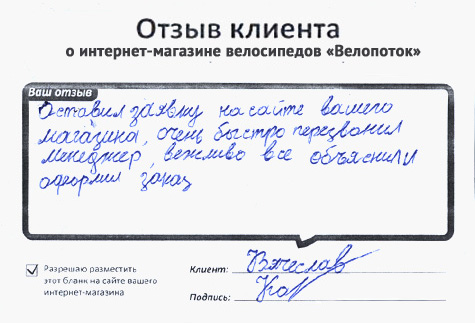 Отзыв клиента
о интернет-магазине велосипедов «Велопоток»
Ваш отзыв
Оставил заявку на сайте вашего
магазина, очень быстро перезвонил
менеджер, вежливо все объяснили
оформил заказ
Разрешаю разместить
этот бланк на сайте вашего
интернет-магазина
Клиент: Вячеслав
Подпись: